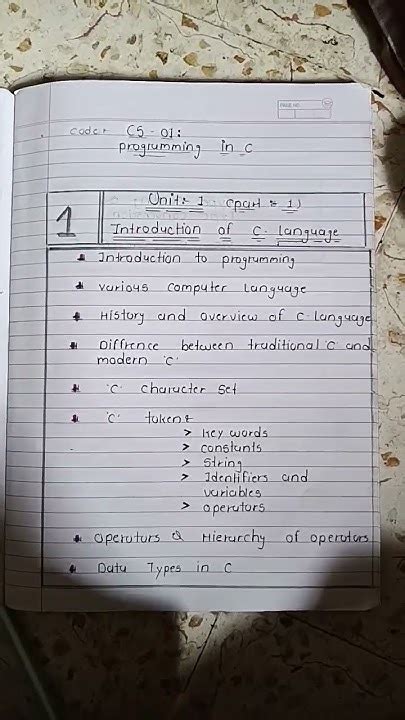 PAGE NO.
Code:- CS-01:
programming in C
1
Unit:- 1 (part :- 1)
Introduction of C. language
Introduction to programming
various computer language
History and overview of C language
Diffrence between traditional 'C' and
modern 'C'
'C' character set
'C' token:
> key words
> constants
> String
> Identifiers and
variables
> operators
operators & Hierarchy of operators
Data Types in C